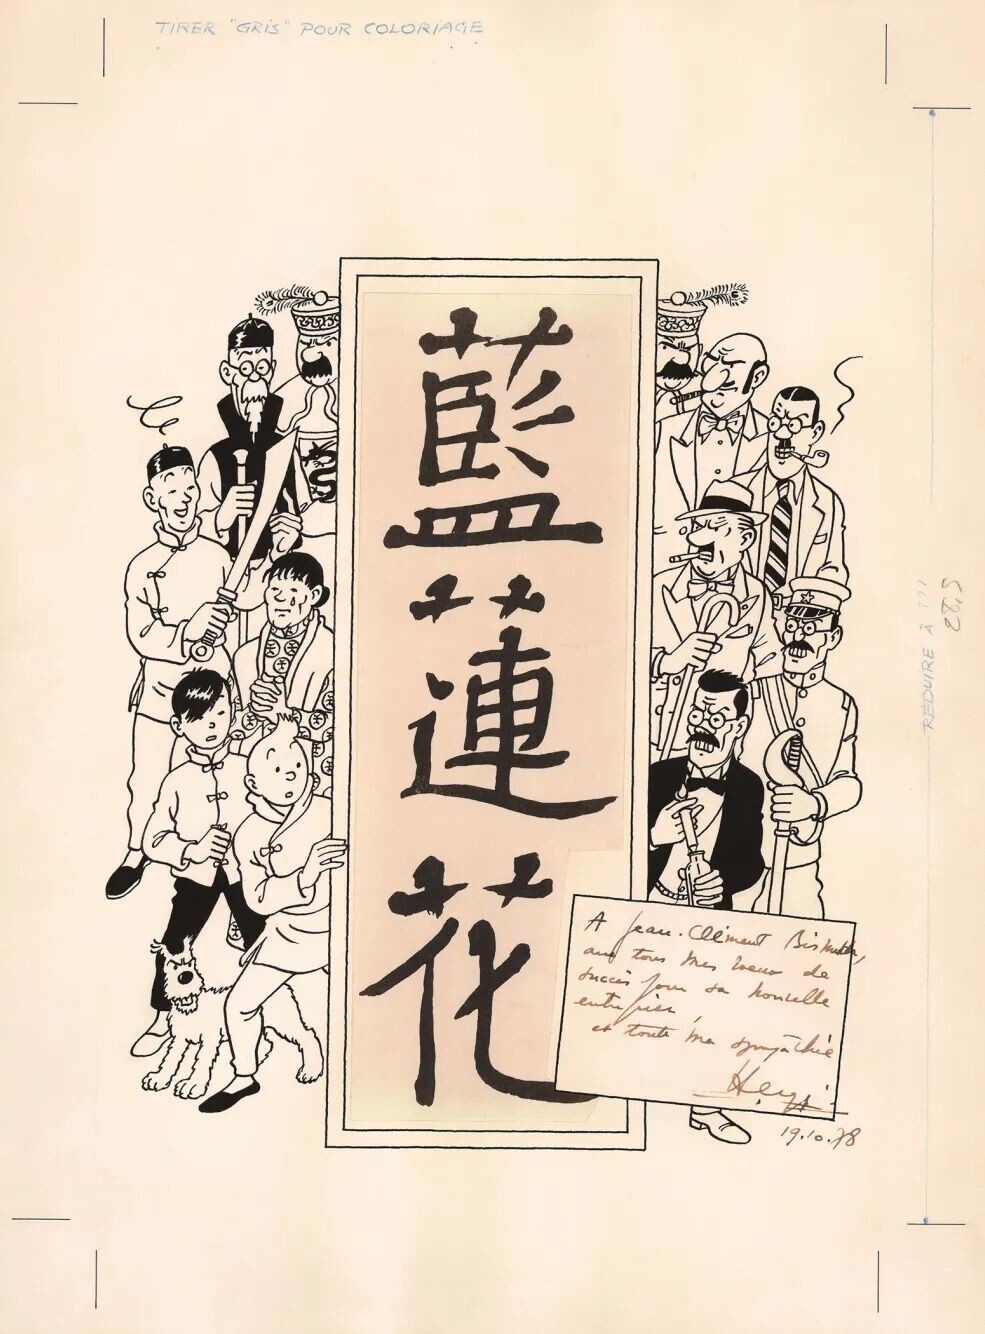 TIRER "GRIS" POUR COLORIAGE
藍
蓮
花
RÉDUIRE À ???
28,5
A Jean-Clément Bismuth,
avec tous mes vœux de
succès pour sa nouvelle
entreprise,
et toute ma sympathie
Hergé
19.10.78